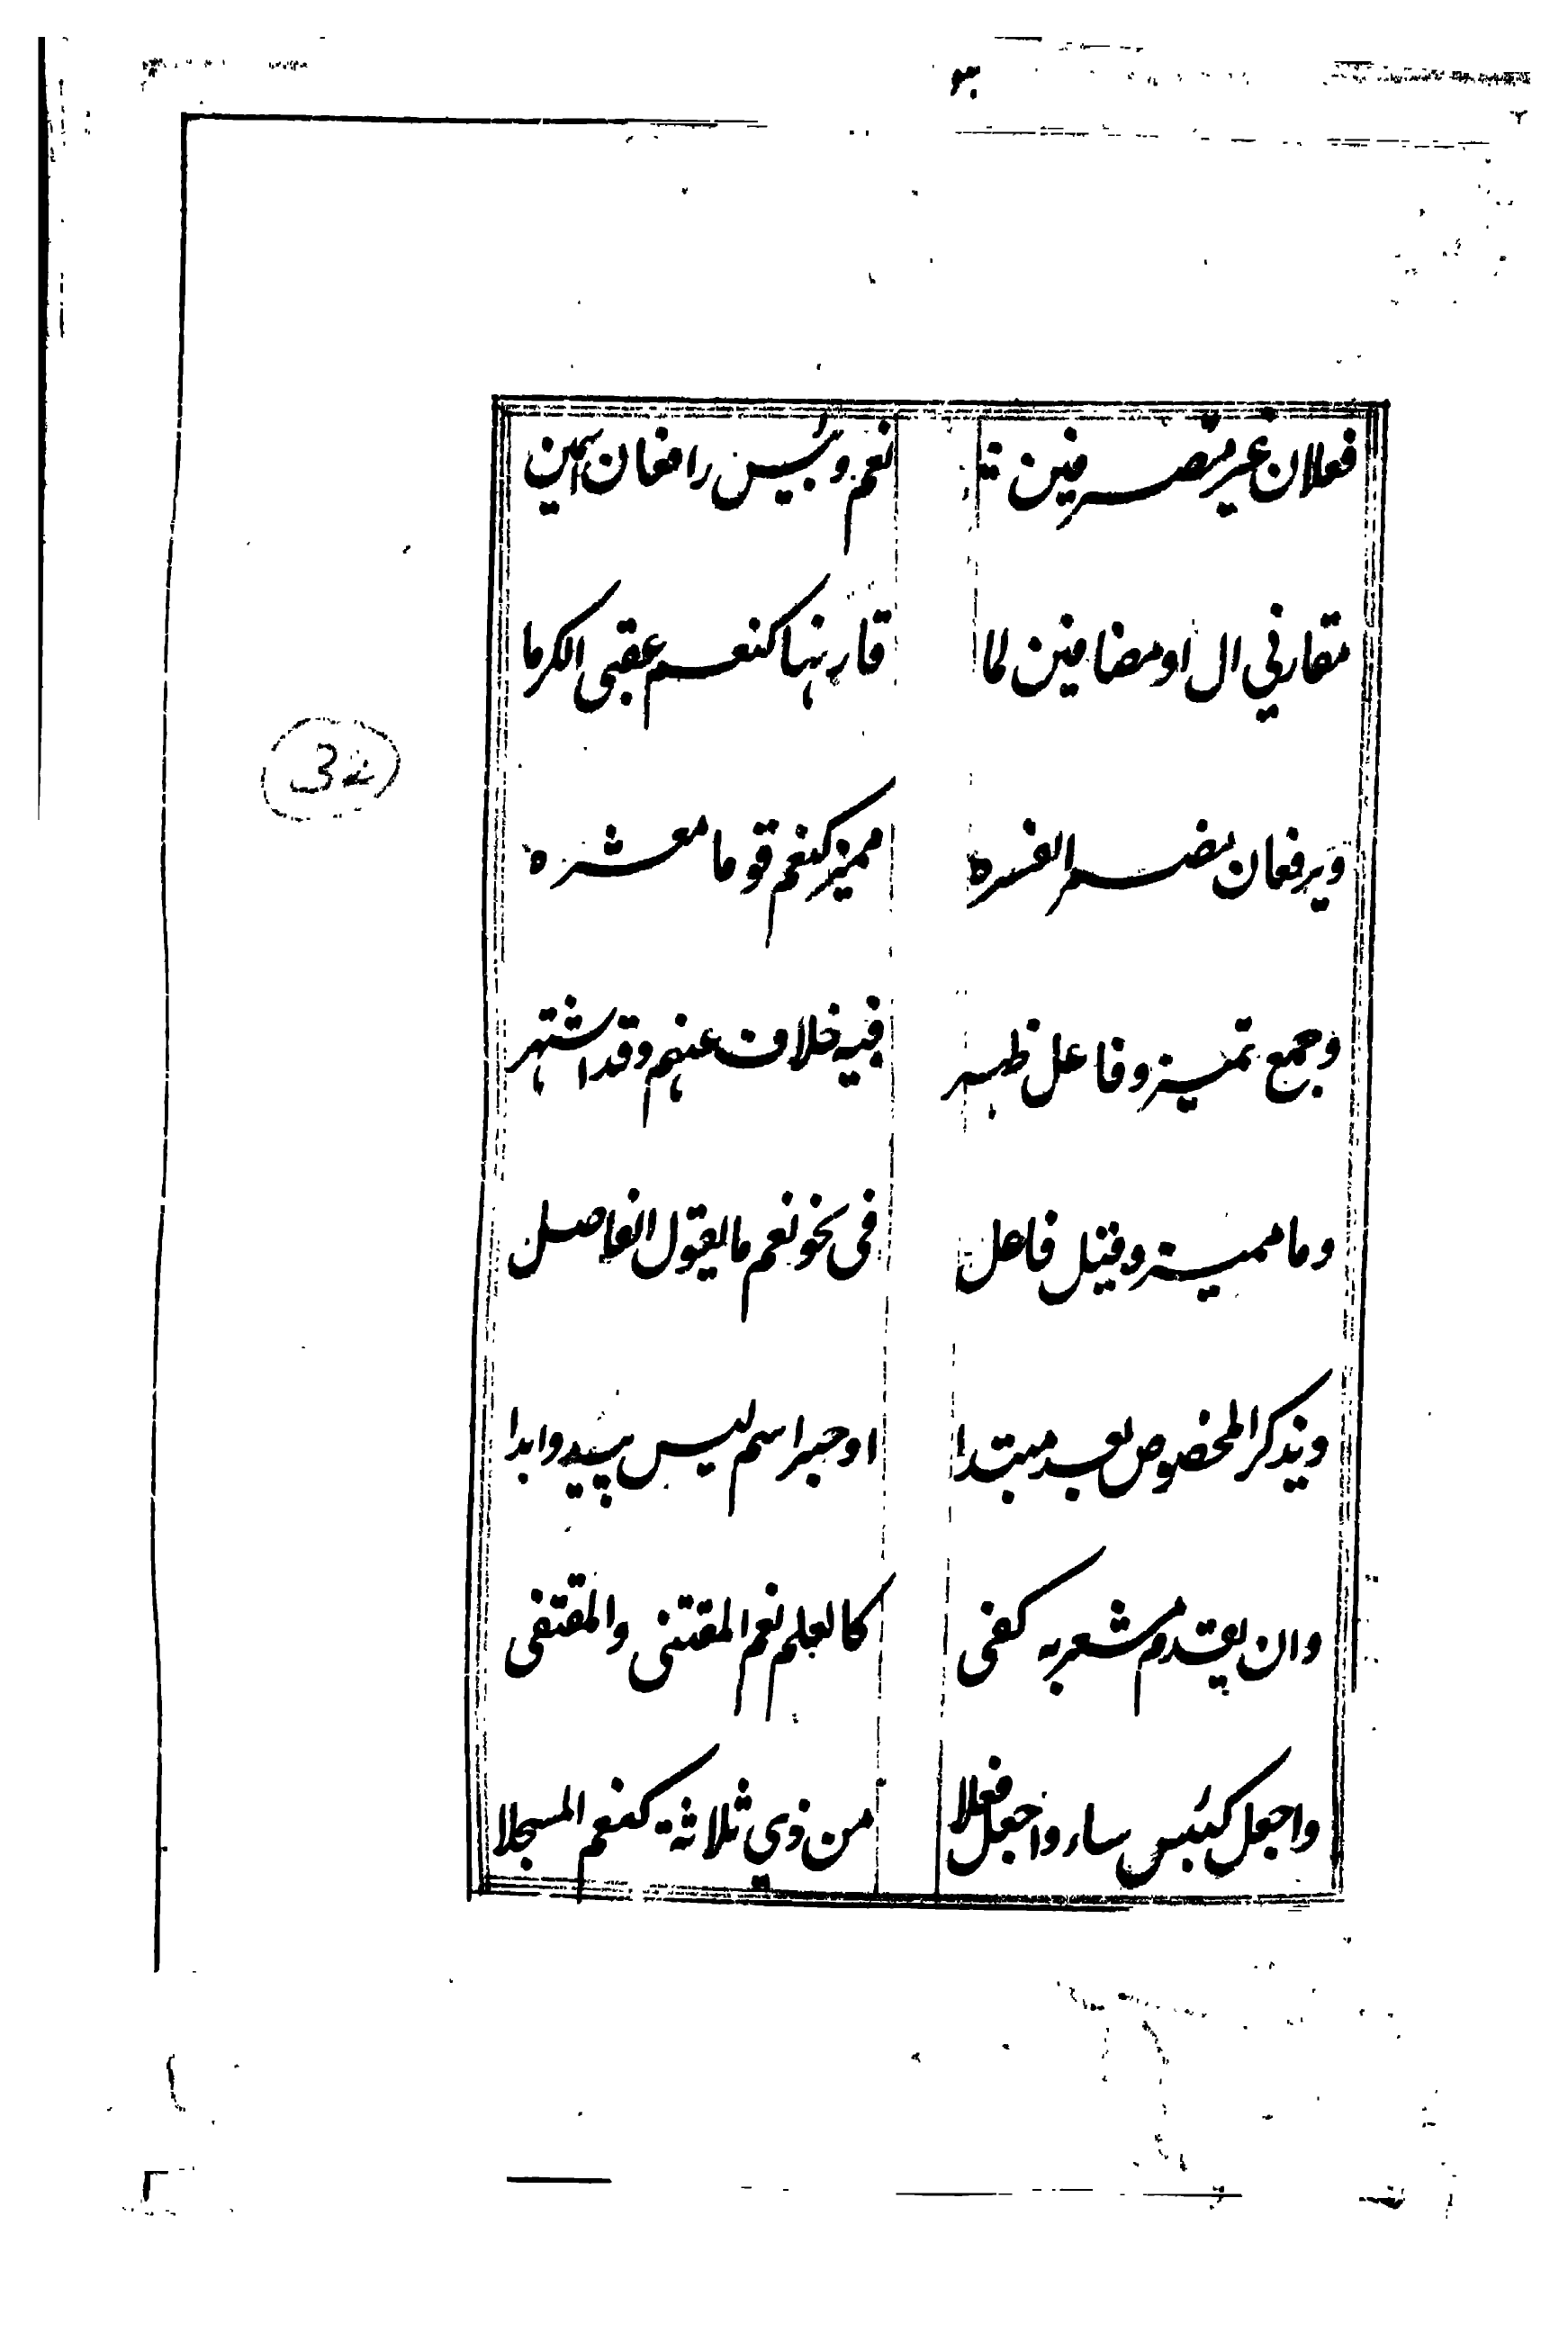 فعلان غير متصرفين نعم وبئيس رافعان اسمين
مقارني ال او مضافين لما قارنها كنعم عقبى الكرما
ويرفعان مضمر ايفسره مميز كنعم قوما معشره
وجمع تميز وفاعل ظهر فيه خلاف عنهم وقد اشتهر
وما مميز وقيل فاعل في نحو نعم ما يقول الفاصل
ويذكر المخصوص بعد مبتدا او خبر اسم ليس يبيدو ابدا
وان يقدم مشعر به كفى كالعلم نعم المقتنى والمقتفى
واجعل كبئس ساء واجعل فعلا من ذي ثلاثة كنعم المسجلا
32